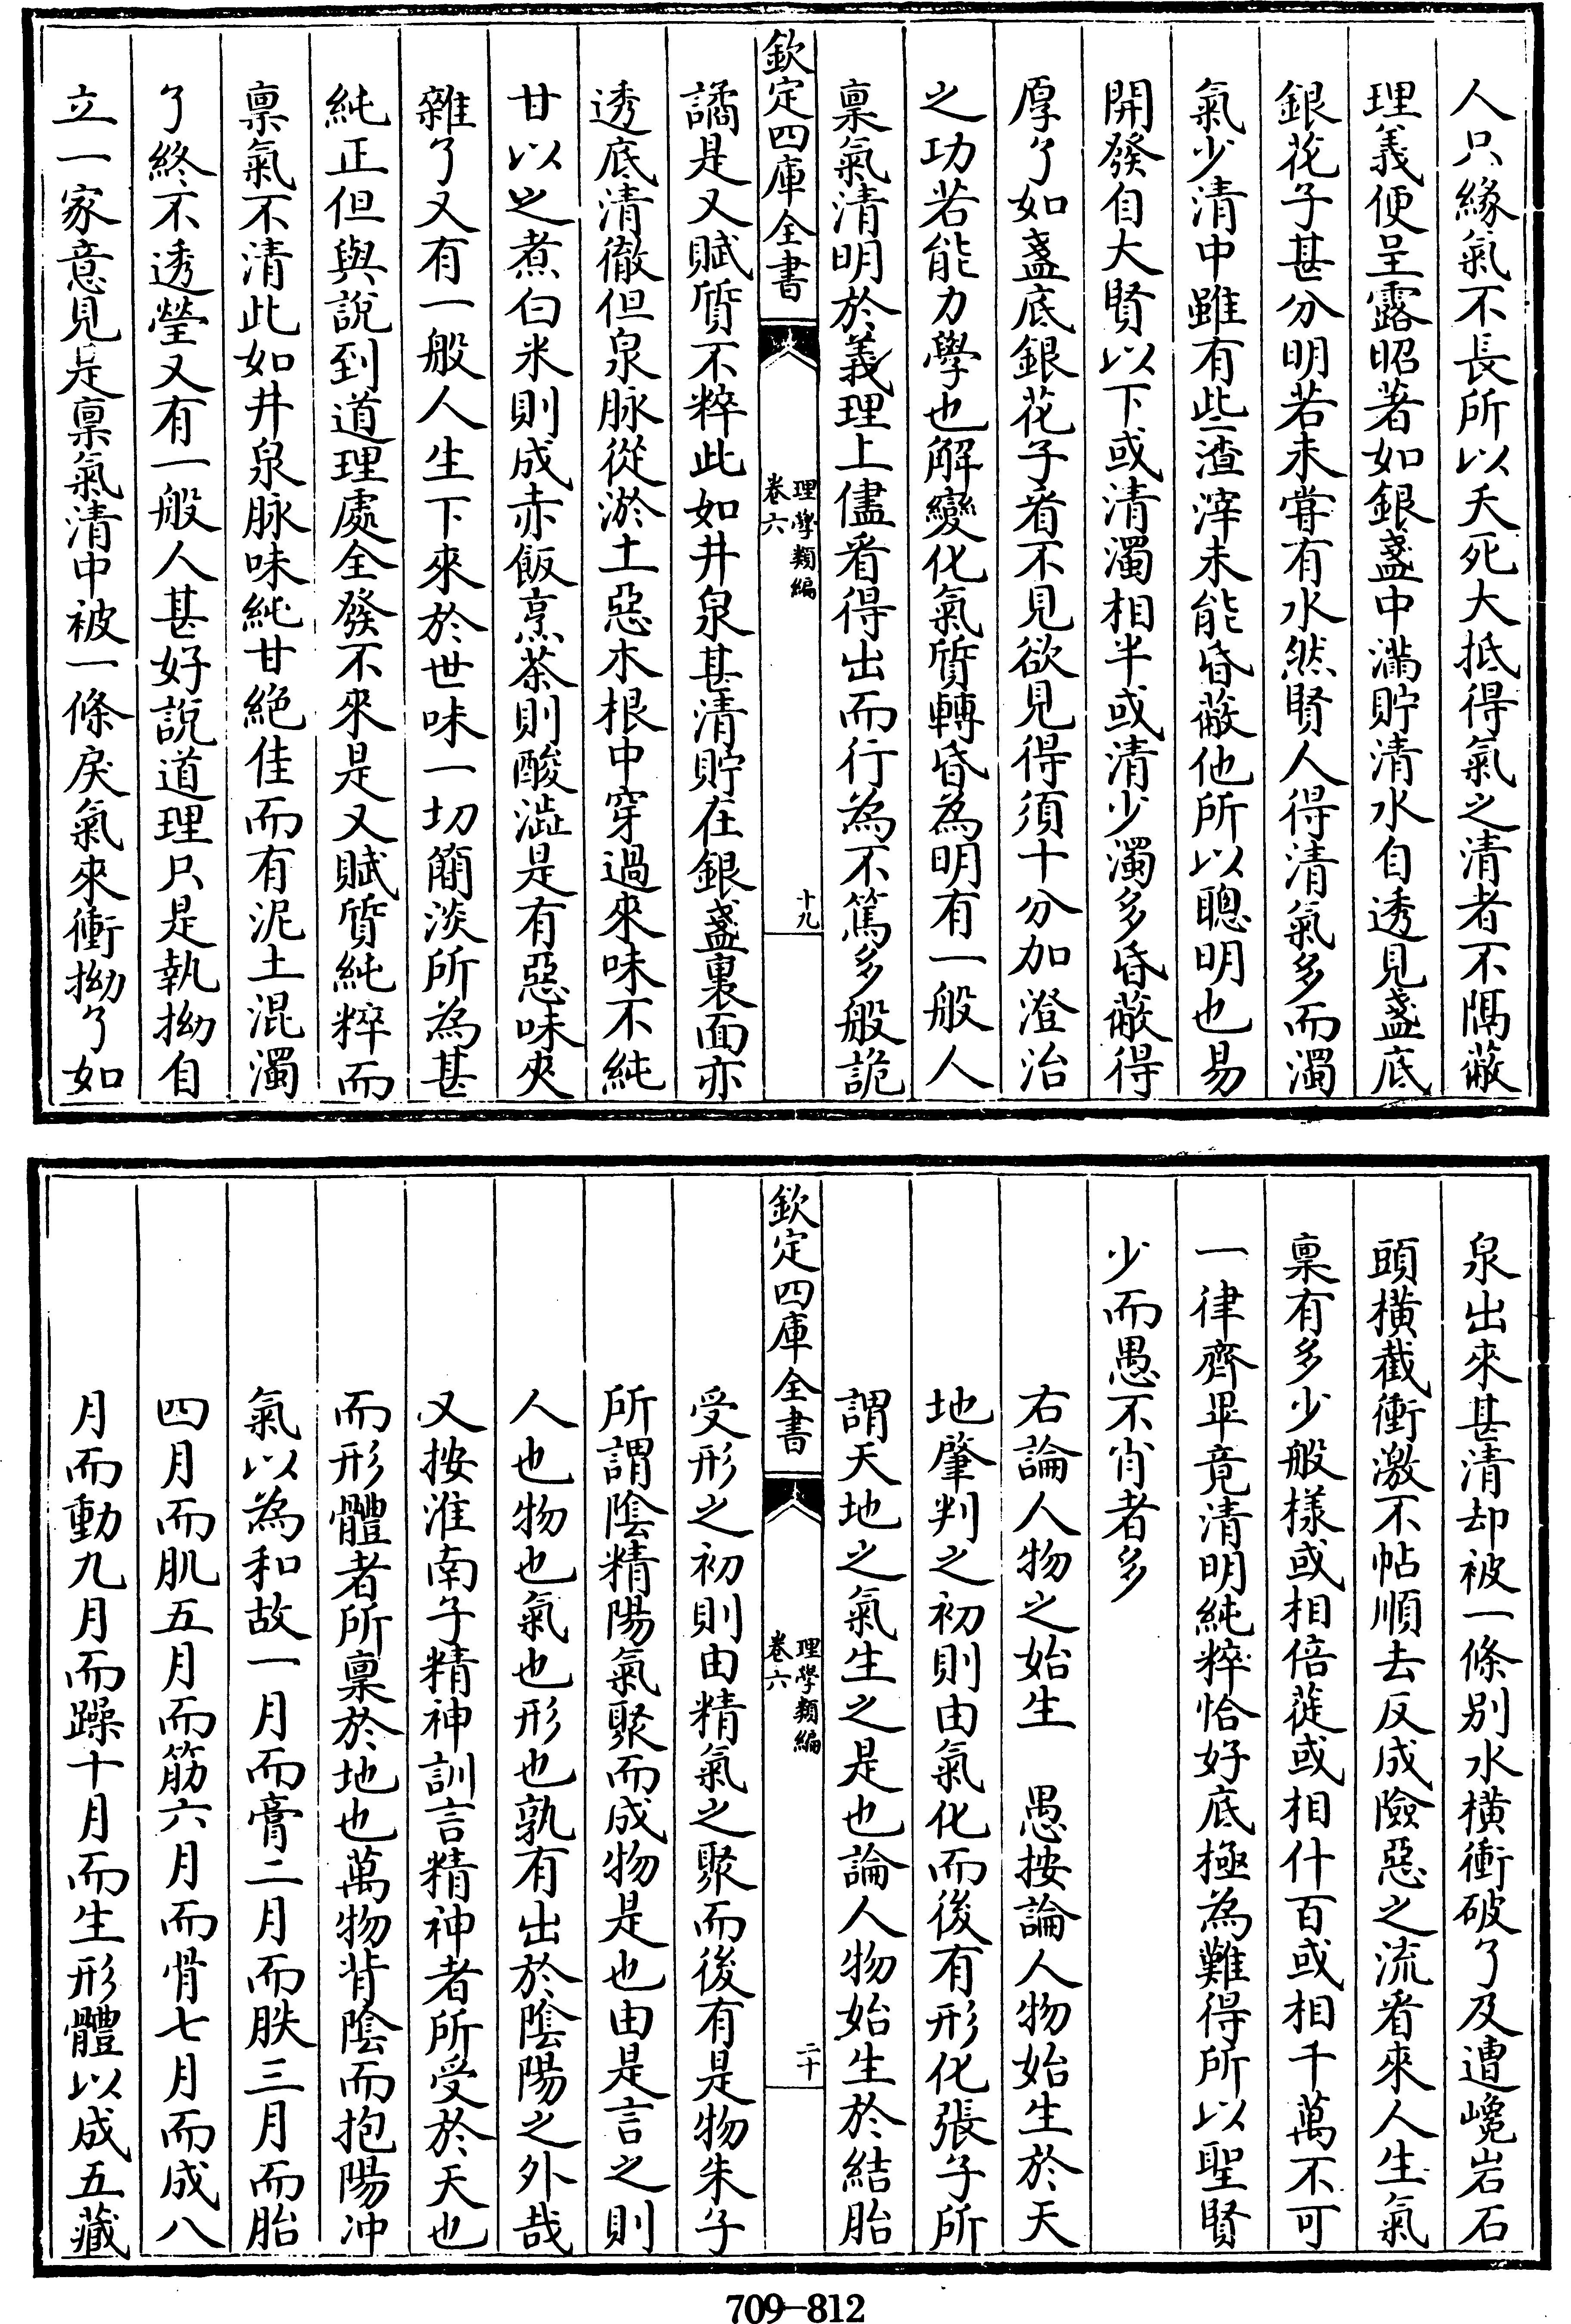 人只緣氣不長所以夭死大抵得氣之清者不隔蔽
理義便呈露昭著如銀盞中滿貯清水自透見盞底
銀花子甚分明若未甞有水然賢人得清氣多而濁
氣少清中雖有些渣滓未能昏蔽他所以聰明也易
開發自大賢以下或清濁相半或清少濁多昏蔽得
厚了如盞底銀花子看不見欲見得須十分加澄治
之功若能力學也解變化氣質轉昏為明有一般人
稟氣清明於義理上儘看得出而行為不篤多般詭
欽定四庫全書
理學類編
卷六
十九
譎是又賦質不粹此如井泉甚清貯在銀盞裏面亦
透底清徹但泉脉從淤土惡木根中穿過來味不純
甘以之煮白米則成赤飯烹茶則酸澁是有惡味夾
雜了又有一般人生下來於世味一切簡淡所為甚
純正但與說到道理處全發不來是又賦質純粹而
稟氣不清此如井泉脉味純甘絶佳而有泥土混濁
了終不透瑩又有一般人甚好說道理只是執拗自
立一家意見是稟氣清中被一條戾氣來衝拗了如
泉出來甚清却被一條别水橫衝破了及遭巉岩石
頭橫截衝激不帖順去反成險惡之流看來人生氣
稟有多少般樣或相倍蓰或相什百或相千萬不可
一律齊畢竟清明純粹恰好底極為難得所以聖賢
少而愚不肖者多
右論人物之始生　愚按論人物始生於天
地肇判之初則由氣化而後有形化張子所
謂天地之氣生之是也論人物始生於結胎
欽定四庫全書
理學類編
卷六
二十
受形之初則由精氣之聚而後有是物朱子
所謂陰精陽氣聚而成物是也由是言之則
人也物也氣也形也孰有出於陰陽之外哉
又按淮南子精神訓言精神者所受於天也
而形體者所稟於地也萬物背陰而抱陽冲
氣以為和故一月而膏二月而胅三月而胎
四月而肌五月而筋六月而骨七月而成八
月而動九月而躁十月而生形體以成五藏
709-812